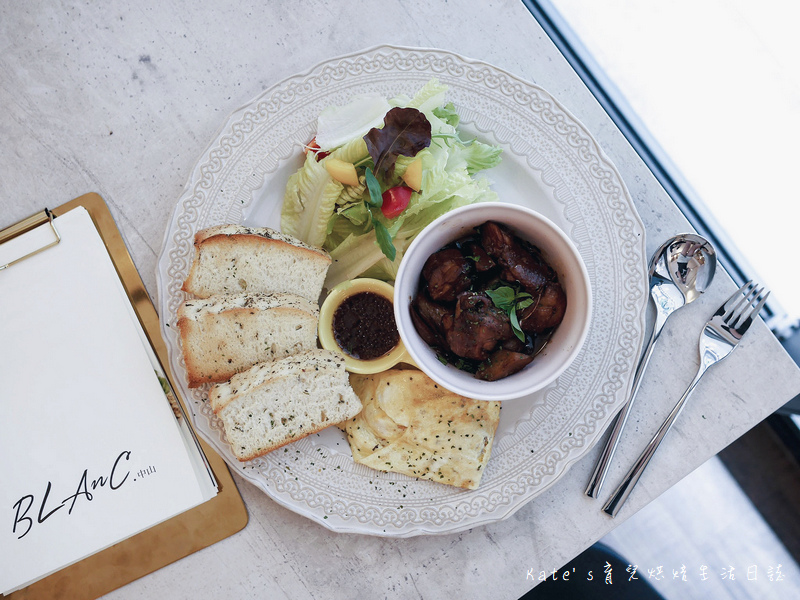 BLAnC.中山
Kate's育兒烘焙手作生活日誌